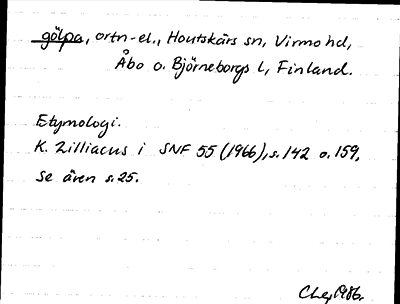 gölpa, ortn-el., Houtskärs sn, Virmo hd,
Åbo o. Björneborgs l, Finland.
Etymologi.
K. Zilliacus i SNF 55 (1966), s. 142 o. 159,
se även s. 25.
1986.